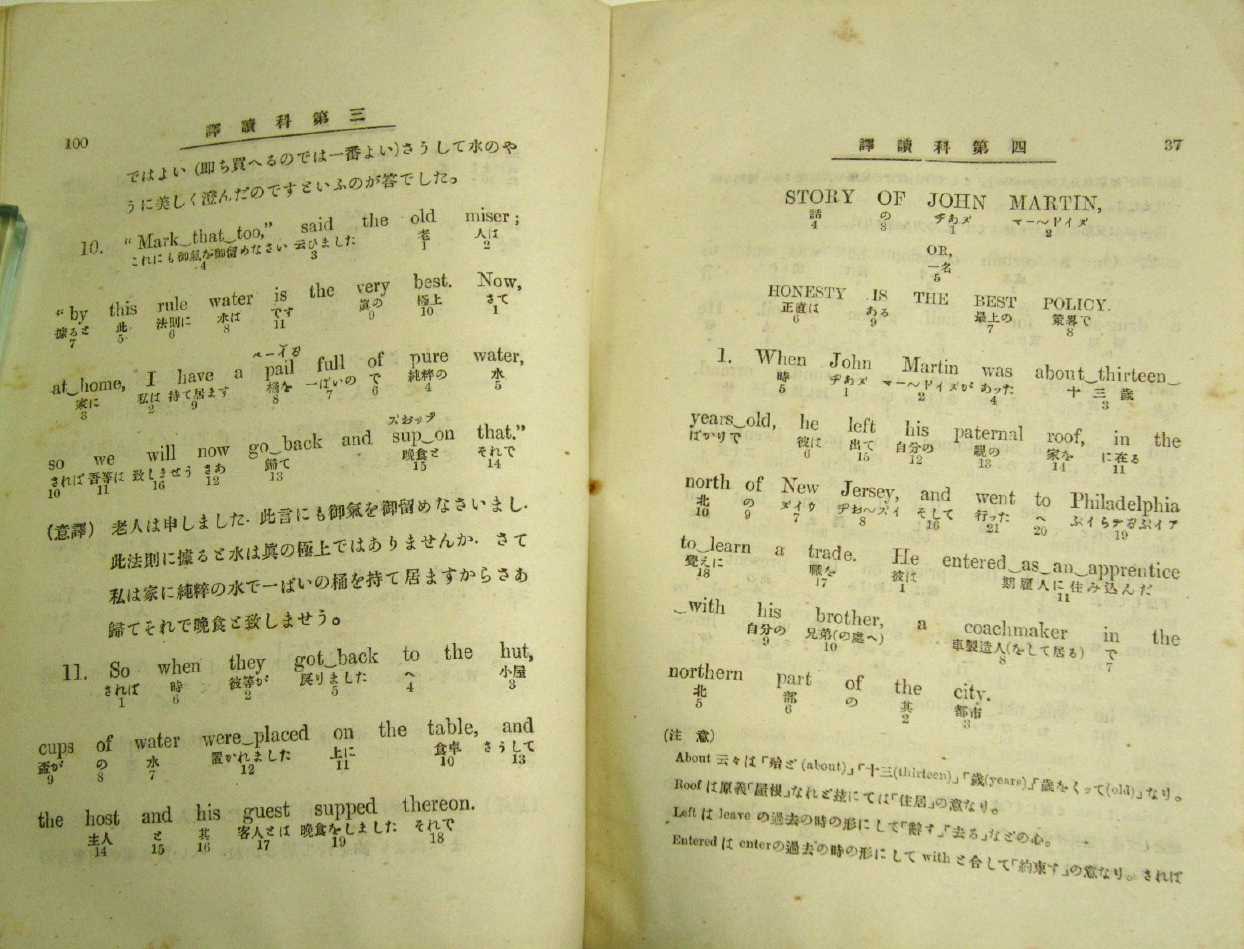 100
譯讀科第三
ではよい(即ち買へるのでは一番よい)さうして水のや
うに美しく澄んだのですといふのが答でした。
10. “Mark that too,” said the old miser;
これにも御氣を御留めなさい 云ひました 老 人は
4 3 1 2
“by this rule water is the very best. Now,
據ると 此 法則に 水は です 眞の 極上 さて
7 5 6 8 11 9 10 1
ペーイる
at home, I have a pail full of pure water,
家に 私は 持て居ます 桶を 一ぱいの で 純粹の 水
3 2 9 8 7 6 4 5
スおップ
so we will now go back and sup on that.”
されば 吾等は 致しませう さあ 歸て 晩食と それで
10 11 16 12 13 15 14
(意譯) 老人は申しました. 此言にも御氣を御留めなさいまし.
此法則に據ると水は眞の極上ではありませんか. さて
私は家に純粹の水で一ぱいの桶を持て居ますからさあ
歸てそれで晩食と致しませう。
11. So when they got back to the hut,
されば 時 彼等が 戻りました へ 小屋
1 6 2 5 4 3
cups of water were placed on the table, and
盃が の 水 置かれました 上に 食卓 さうして
9 8 7 12 11 10 13
the host and his guest supped thereon.
主人 と 其 客人とは 晩食をしました それで
14 15 16 17 19 18
譯讀科第四
37
STORY OF JOHN MARTIN,
話 の ヂあメ マー〜ドイメ
4 3 1 2
OR,
一名
5
HONESTY IS THE BEST POLICY.
正直は ある 最上の 策畧で
6 9 7 8
1. When John Martin was about thirteen
時 ヂあメ マー〜ドイメが あった 十三歲
5 1 2 4 3
years old, he left his paternal roof, in the
ばかりで 彼は 出て 自分の 親の 家を に在る
6 15 12 13 14 11
north of New Jersey, and went to Philadelphia
北 の メイウ ヂお〜ズイ そして 行った へ
10 9 7 8 16 21 20 19
to learn a trade. He entered as an apprentice
覺えに 職を 彼は 朞雇人に住み込んだ
18 17 1 11
with his brother, a coachmaker in the
自分の 兄弟(の處へ) 車製造人(をして居る) で
9 10 8 7
northern part of the city.
北 部 の 其 都市
5 6 2 3
(注意)
About 云々は「殆ど(about)」「十三(thirteen)」「歲(years)」「歲をくって(old)」なり。
Roof は原義「屋根」なれど玆にては「住居」の意なり。
Left は leave の過去の時の形にして「辭す」「去る」などの心。
Entered は enterの過去の時の形にして with と合して「約束す」の意なり。されば